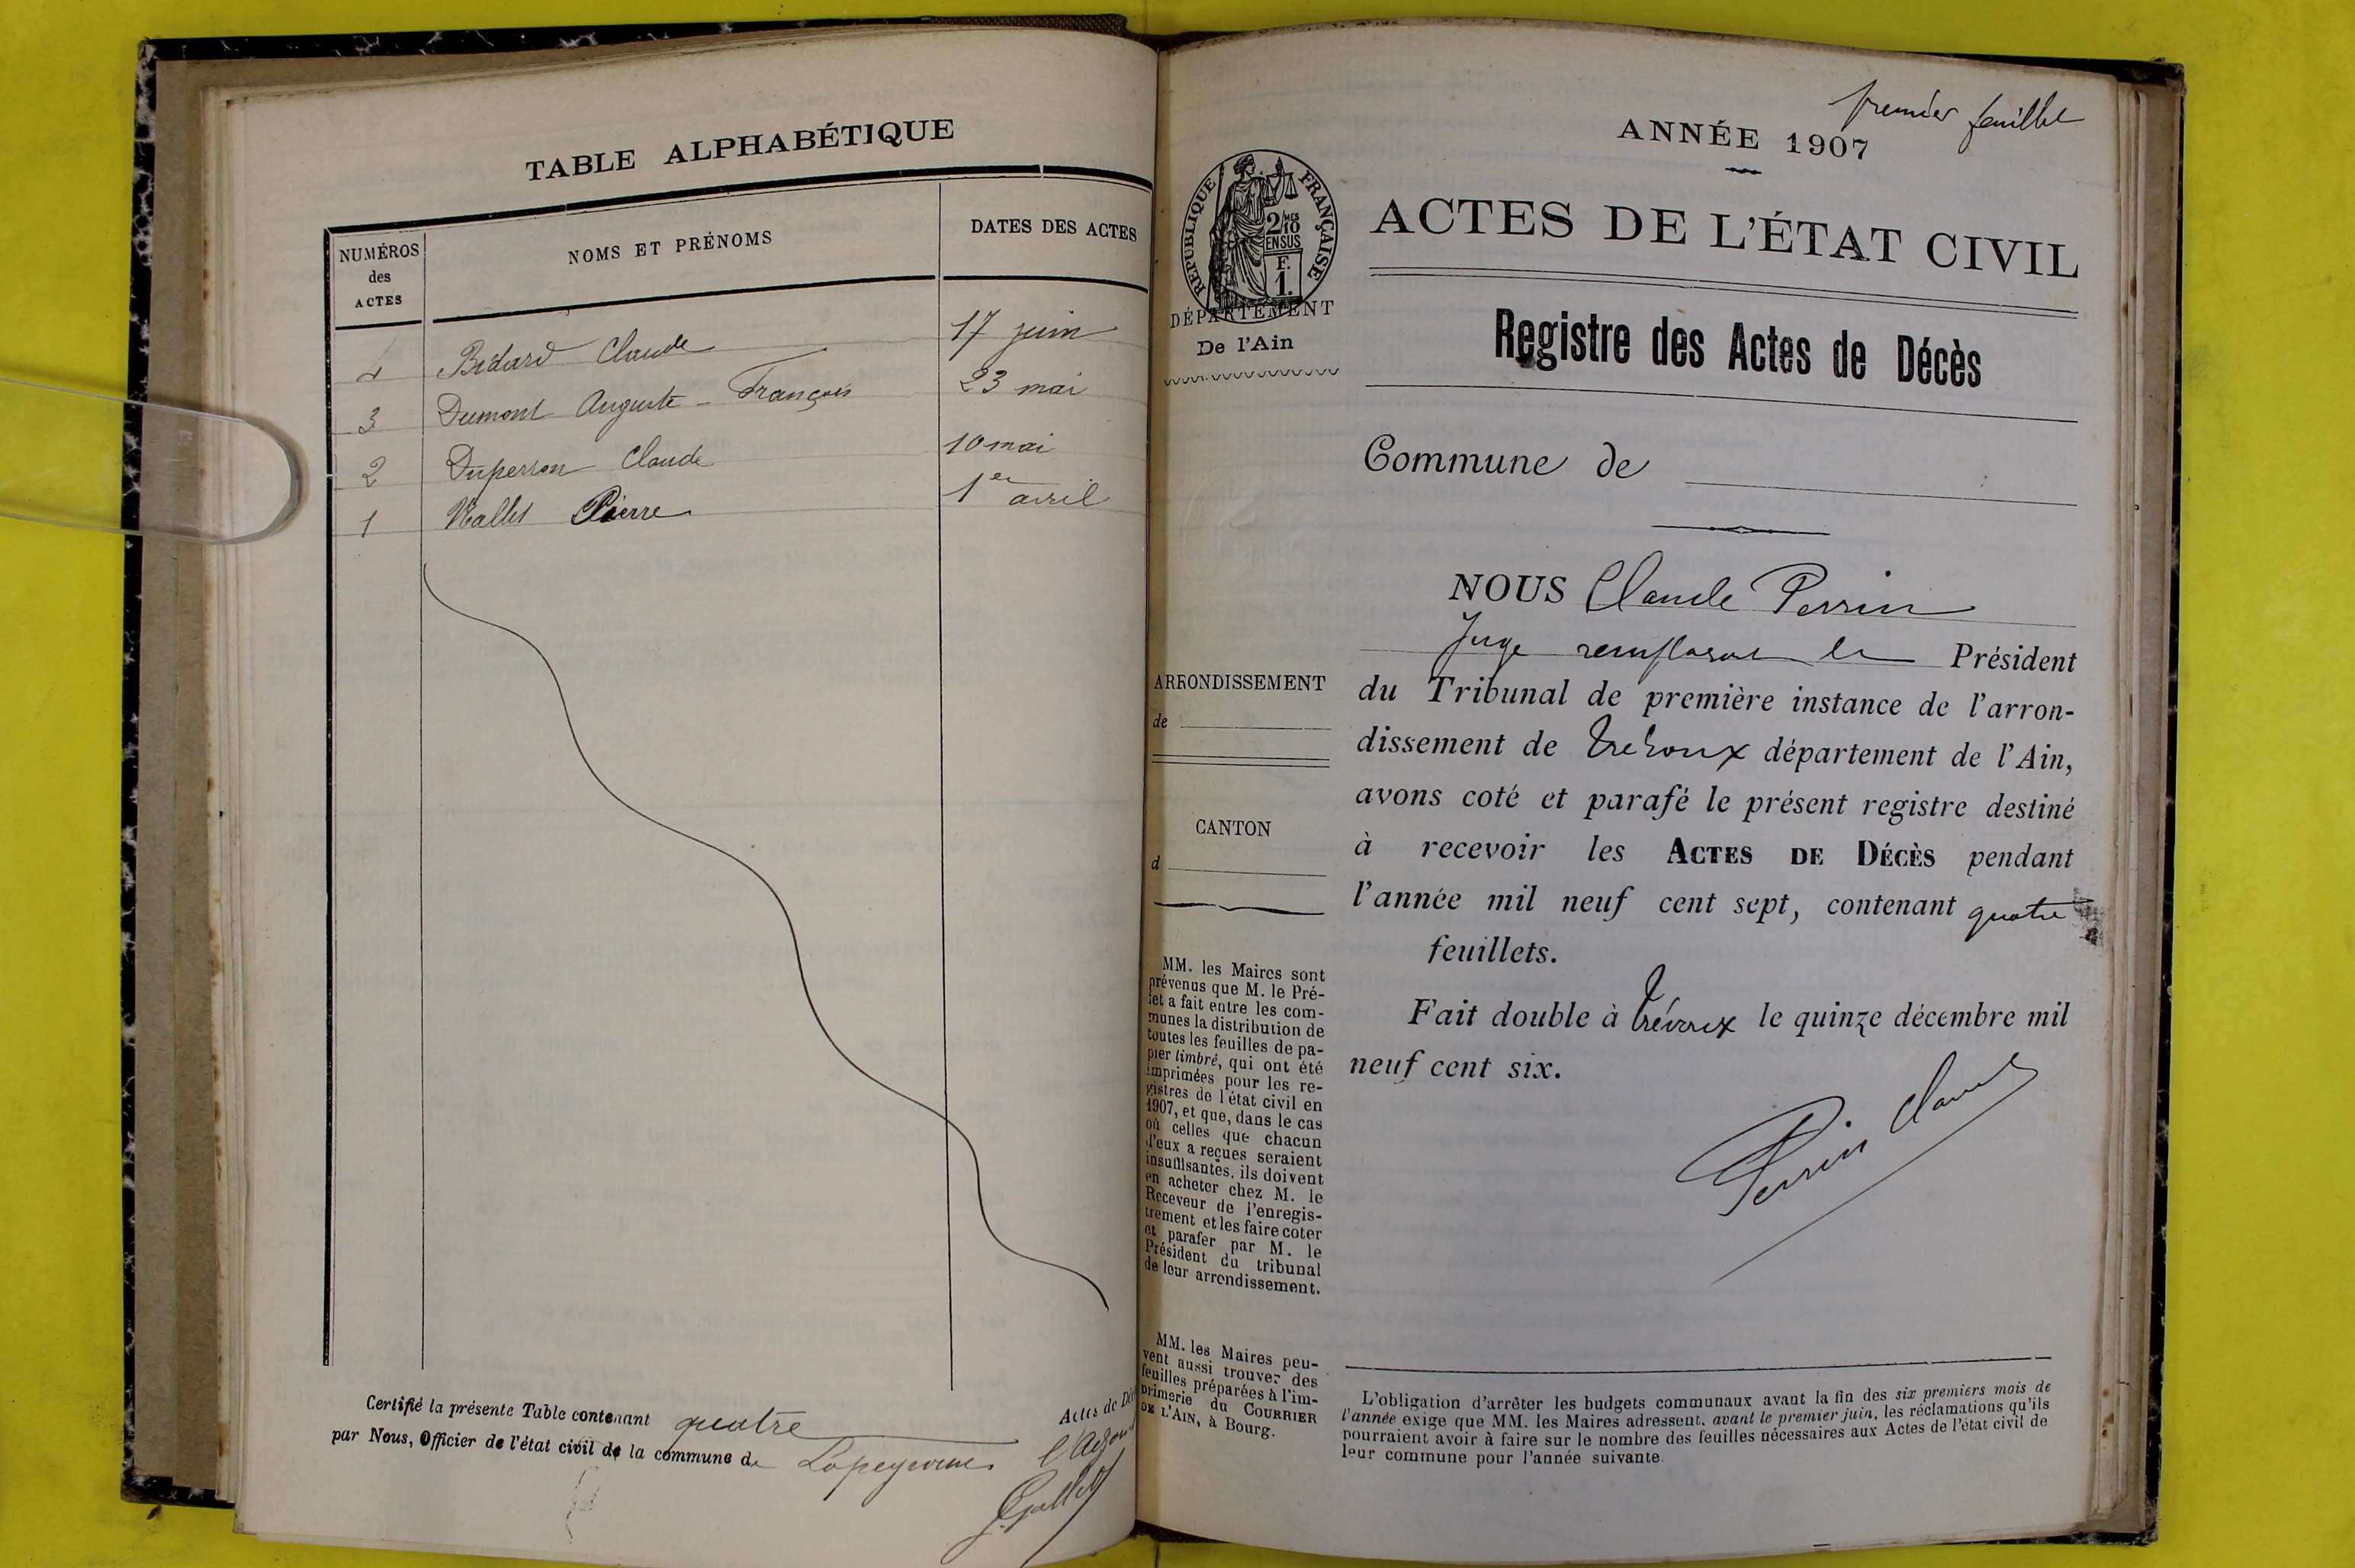 TABLE ALPHABÉTIQUE
NUMÉROS
des
ACTES
NOMS ET PRÉNOMS
DATES DES ACTES
4 Bidard Claude 17 juin
3 Dumont Auguste - François 23 mai
2 Duperron Claude 10 mai
1 Pierre 1er avril
Certifié la présente Table contenant quatre Actes de Déc
par Nous, Officier de l'état civil de la commune de Lapeyrouse
premier feuillet
ANNÉE 1907
RÉPUBLIQUE FRANÇAISE
2/10MES
EN SUS
F.
1.
ACTES DE L'ÉTAT CIVIL
DÉPARTEMENT
De l'Ain
Registre des Actes de Décès
Commune de
NOUS Claude Perrin
Juge remplaçant le Président
du Tribunal de première instance de l'arron-
dissement de Trévoux département de l'Ain,
avons coté et parafé le présent registre destiné
à recevoir les ACTES DE DÉCÈS pendant
l'année mil neuf cent sept, contenant quatre
feuillets.
Fait double à Trévoux le quinze décembre mil
neuf cent six.
Perrin Claude
ARRONDISSEMENT
de
CANTON
d
MM. les Maires sont
prévenus que M. le Pré-
fet a fait entre les com-
munes la distribution de
toutes les feuilles de pa-
pier timbré, qui ont été
imprimées pour les re-
gistres de l'état civil en
1907, et que, dans le cas
où celles que chacun
d'eux a reçues seraient
insuffisantes, ils doivent
en acheter chez M. le
Receveur de l'enregis-
trement et les faire coter
et parafer par M. le
Président du tribunal
de leur arrondissement.
MM. les Maires peu-
vent aussi trouver des
feuilles préparées à l'im-
primerie du COURRIER
DE L'AIN, à Bourg.
L'obligation d'arrêter les budgets communaux avant la fin des six premiers mois de
l'année exige que MM. les Maires adressent, avant le premier juin, les réclamations qu'ils
pourraient avoir à faire sur le nombre des feuilles nécessaires aux Actes de l'état civil de
leur commune pour l'année suivante.